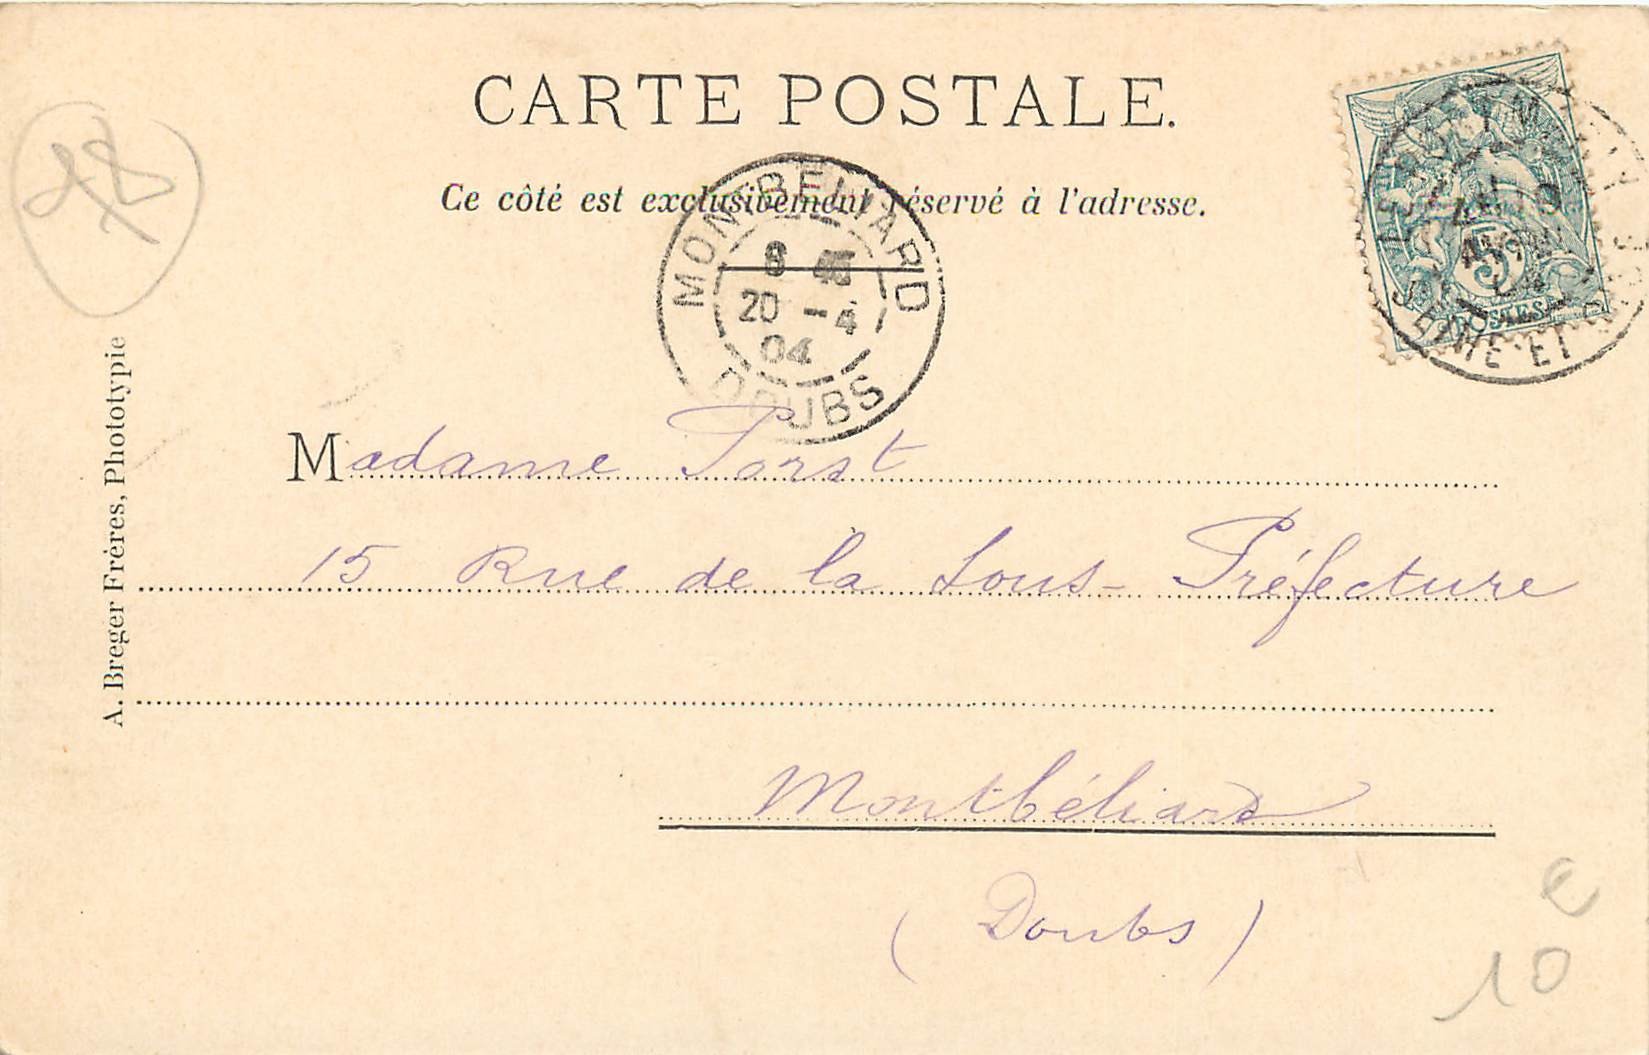 CARTE POSTALE.
Ce côté est exclusivement réservé à l'adresse.
MONTBÉLIARD
20 - 4
04
DOUBS
5
POSTES
Madame Porst
15 Rue de la Sous-Préfecture
Montbéliard
(Doubs)
A. Breger Frères, Phototypie
€
10